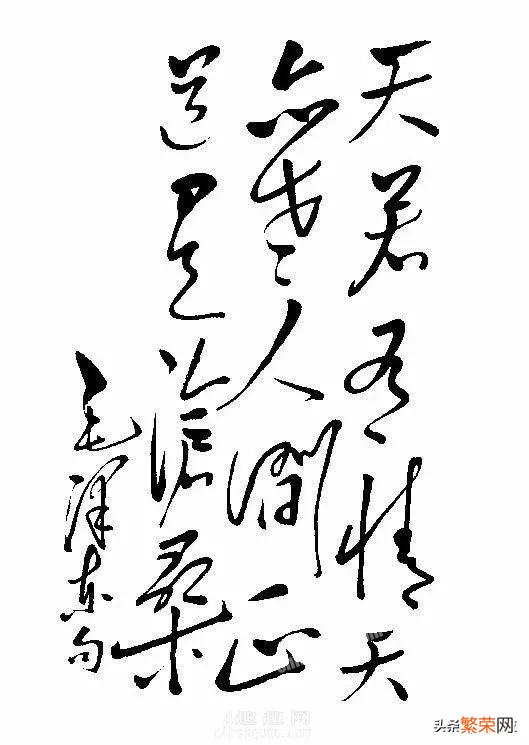 天若有情天
亦老人間正
道是滄桑
毛泽东句
头条 繁荣网